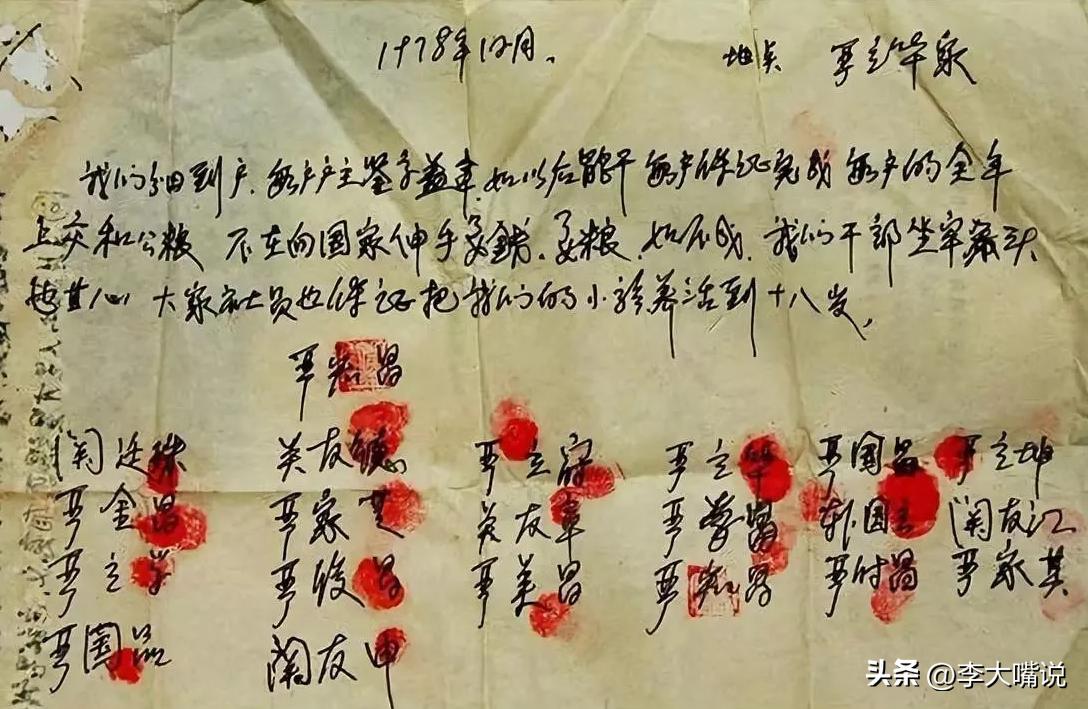 1978年12月、 地点 严立华家
我们分田到户、每户户主签字盖章、如以后能干 每户保证完成每户的全年
上交和公粮 不在向国家伸手要钱、要粮、如不成、我们干部坐牢杀头
也甘心、大家社员也保证把我们的小孩养活到十八岁，
严宏昌
关廷珠 关友德 严立符 严立华 严国昌 严立坤
严金昌 严家芝 关友章 严学昌 韩国云 关友江
严立学 严俊昌 严美昌 严宏昌 严付昌 严家其
严国品 关友申
头条 @李大嘴说